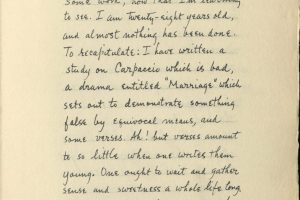 some work, now that I'm learning
to see. I am twenty-eight years old,
and almost nothing has been done.
To recapitulate: I have written a
study on Carpaccio which is bad,
a drama entitled "Marriage" which
sets out to demonstrate something
false by equivocal means, and
some verses. Ah! but verses amount
to so little when one writes them
young. One ought to wait and gather
sense and sweetness a whole life long,